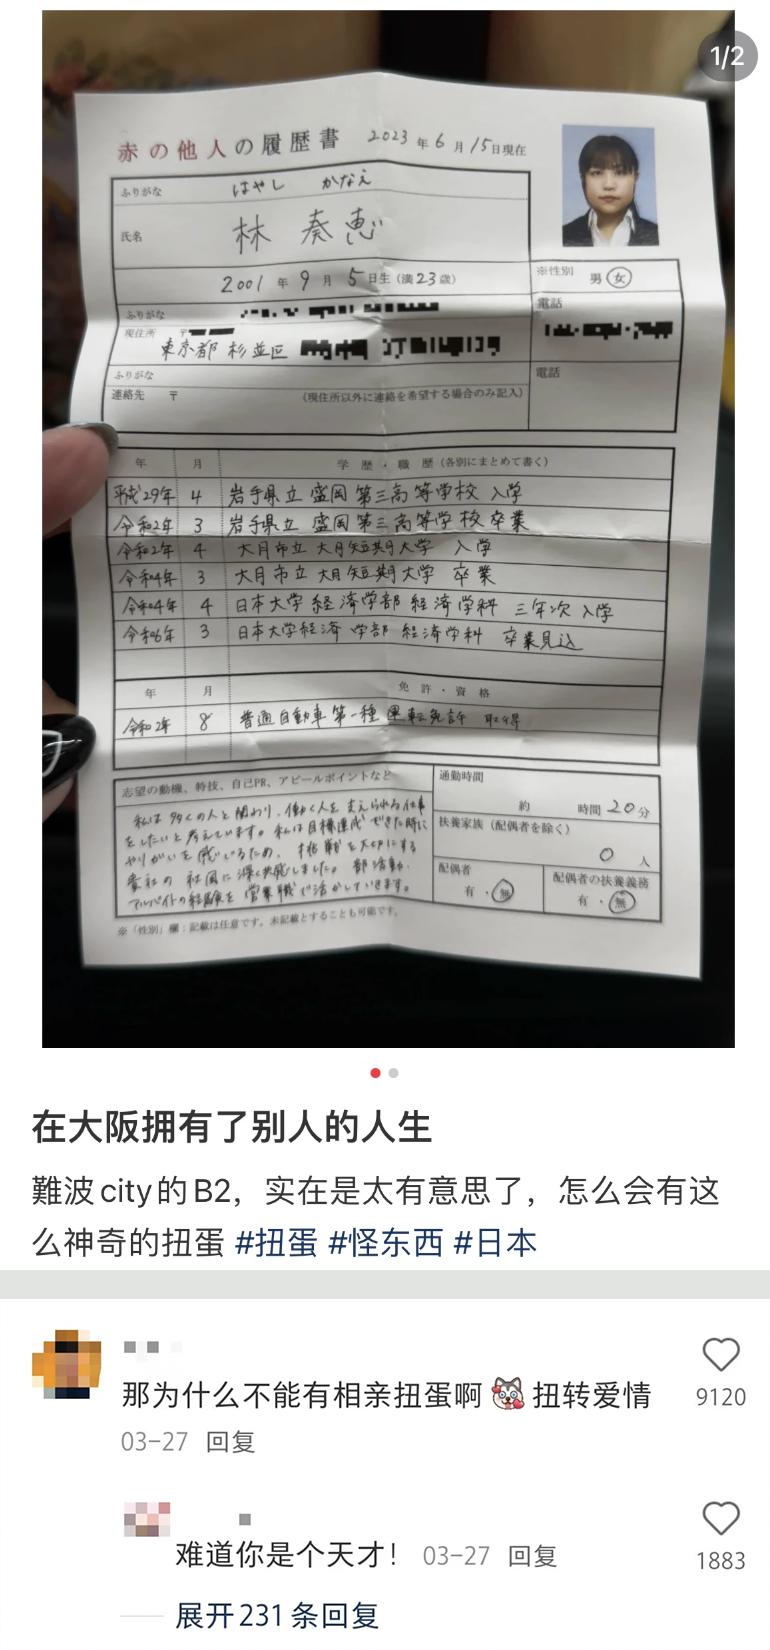 1/2
赤の他人の履歴書 2023年6月15日現在
ふりがな はやし かなえ
氏名 林 奏恵
2001年9月5日生(満23歳)
※性別 男 女
ふりがな
電話
現住所 〒
東京都 杉並区
ふりがな
電話
連絡先 〒 (現住所以外に連絡を希望する場合のみ記入)
年 月 学歴・職歴(各別にまとめて書く)
平成29年 4 岩手県立 盛岡第三高等学校 入学
令和2年 3 岩手県立 盛岡第三高等学校卒業
令和2年 4 大月市立 大月短期大学 入学
令和4年 3 大月市立 大月短期大学 卒業
令和4年 4 日本大学 経済学部 経済学科 三年次 入学
令和6年 3 日本大学経済学部 経済学科 卒業見込
年 月 免許・資格
令和2年 8 普通自動車第一種運転免許 取得
志望の動機、特技、自己PR、アピールポイントなど
私は多くの人と関わり、働く人を支えられる仕事
をしたいと考えています。私は目標達成できた時に
やりがいを感じるため、挑戦を大切にする
貴社の社風に深く共感しました。部活動、
アルバイトの経験を営業職で活かしていきます。
通勤時間
約 時間20分
扶養家族(配偶者を除く)
0人
配偶者
有・無
配偶者の扶養義務
有・無
※「性別」欄:記載は任意です。未記載とすることも可能です。
在大阪拥有了别人的人生
難波city的B2，实在是太有意思了，怎么会有这
么神奇的扭蛋 #扭蛋 #怪东西 #日本
那为什么不能有相亲扭蛋啊 扭转爱情
9120
03-27 回复
难道你是个天才！ 03-27 回复
1883
展开231条回复